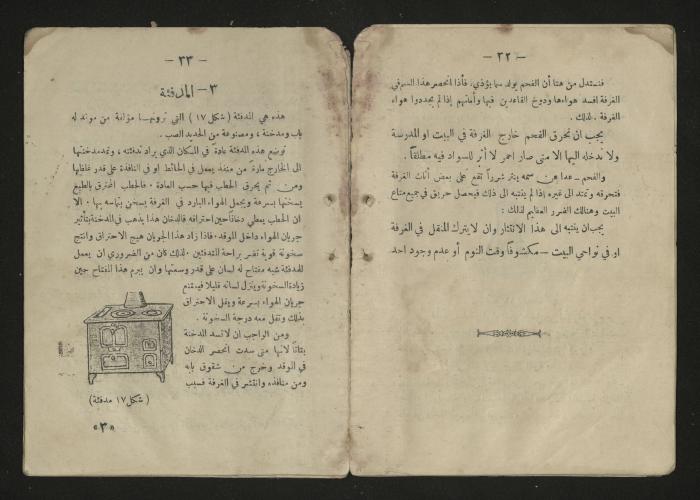 — ٣٢ —
فنستدل من هنا أن الفحم يولد سما يؤذي، فاذا انحصر هذا السم في
الغرفة افسد هواءها ودوخ القاعدين فيها وأماتهم إذا لم يجددوا هواء
الغرفة. لذلك:
يجب ان نحرق الفحم خارج الغرفة في البيت او المدرسة
ولا ندخله اليها الا متى صار احمر لا أثر للسواد فيه مطلقاً.
والفحم — عدا عن سمه ينثر شرراً تقع على بعض أثاث الغرفة
فتحرقه وتمتد الى غيره إذا لم ينتبه الى ذلك فيحصل حريق في جميع متاع
البيت وهنالك الضرر العظيم لذلك:
يجب ان ينتبه الى هذا الانتثار وان لا يترك المنقل في الغرفة
او في نواحي البيت — مكشوفاً وقت النوم أو عدم وجود احد
— ٣٣ —
٣ — المدفئة
هذه هي المدفئة (شكل ١٧) التي ترونها مؤلفة من موقد له
باب ومدخنة، ومصنوعة من الحديد الصب.
توضع هذه المدفئة عادة في المكان الذي يراد تدفئته، وتمد مدخنتها
الى الخارج مارة من منفذ يعمل في الحائط او في النافذة على قدر غلظها
ومن ثم يحرق الحطب فيها حسب العادة. فالحطب المحترق بالطبع
يسخنها بسرعة ويجعل الهواء البارد في الغرفة يسخن بتماسه بها. الا
ان الحطب يعطي دخاناً حين احتراقه فالدخان هذا يذهب في المدخنة بتأثير
جريان الهواء داخل الموقد. فاذا زاد هذا الجريان هيج الاحتراق وانتج
سخونة قوية تضر براحة المتدفئين. لذلك كان من الضروري ان يعمل
للمدفئة شبه مفتاح له لسان على قدر وسعتها وان يبرم هذا المفتاح حين
زيادة السخونة وينزل لسانه قليلا فيمتنع
جريان الهواء بسرعة ويقل الاحتراق
بذلك وتقل معه درجة السخونة.
ومن الواجب ان لا تسد المدخنة
بتاتاً لانها متى سدت انحصر الدخان
في الموقد وخرج من شقوق بابه
ومن منافذه وانتشر في الغرفة فسبب
(شكل ١٧ مدفئة)
«٣»